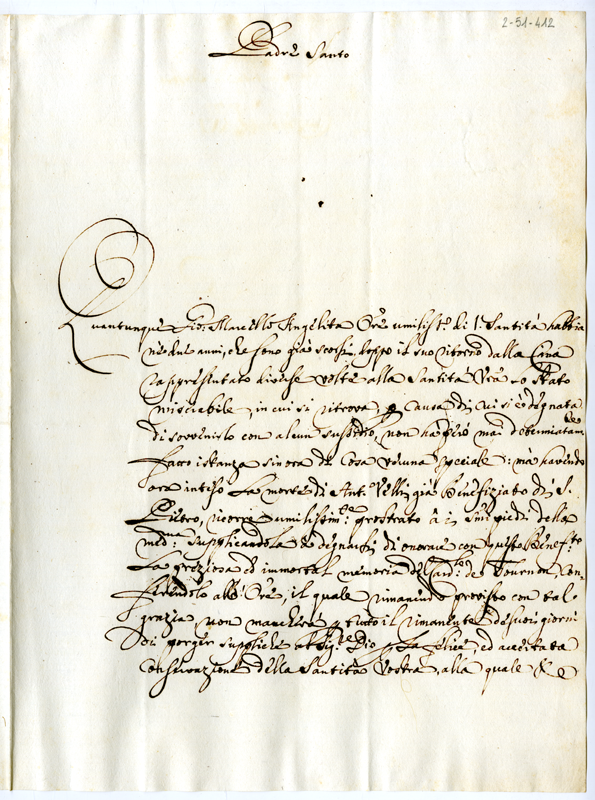 2-51-412
Padre Santo
Quantunque Gio: Marcello Angelita Ore umilissº di V. Santità habbia
ne due anni, che sono già scorsi doppo il suo ritorno dalla Cina
rappresentato diverse volte alla Santità Vra lo stato
miserabile, in cui si ritrova, p causa di cui si è degnata
di sovvenirlo con alcun sussidio, non ha però mai determinatamte
fatto istanza sin ora di cosa veruna speciale: mà havendo
ora inteso la morte di Antº Vellij già Benefiziato di S.
Pietro, ricorre umilissimte prostrato à i Smi piedi della
medma supplicandola à degnarsi di onorare con questo Benefº
la preziosa ed immortal memoria del Cardle de Tournon, con=
ferendolo allº Ore, il quale rimanendo provisto con tal
grazia non mancherà p tutto il rimanente de suoi giorni
di porger suppliche al Sigre Dio p la felice, ed accertata
conservazione della Santità Vostra, alla quale &